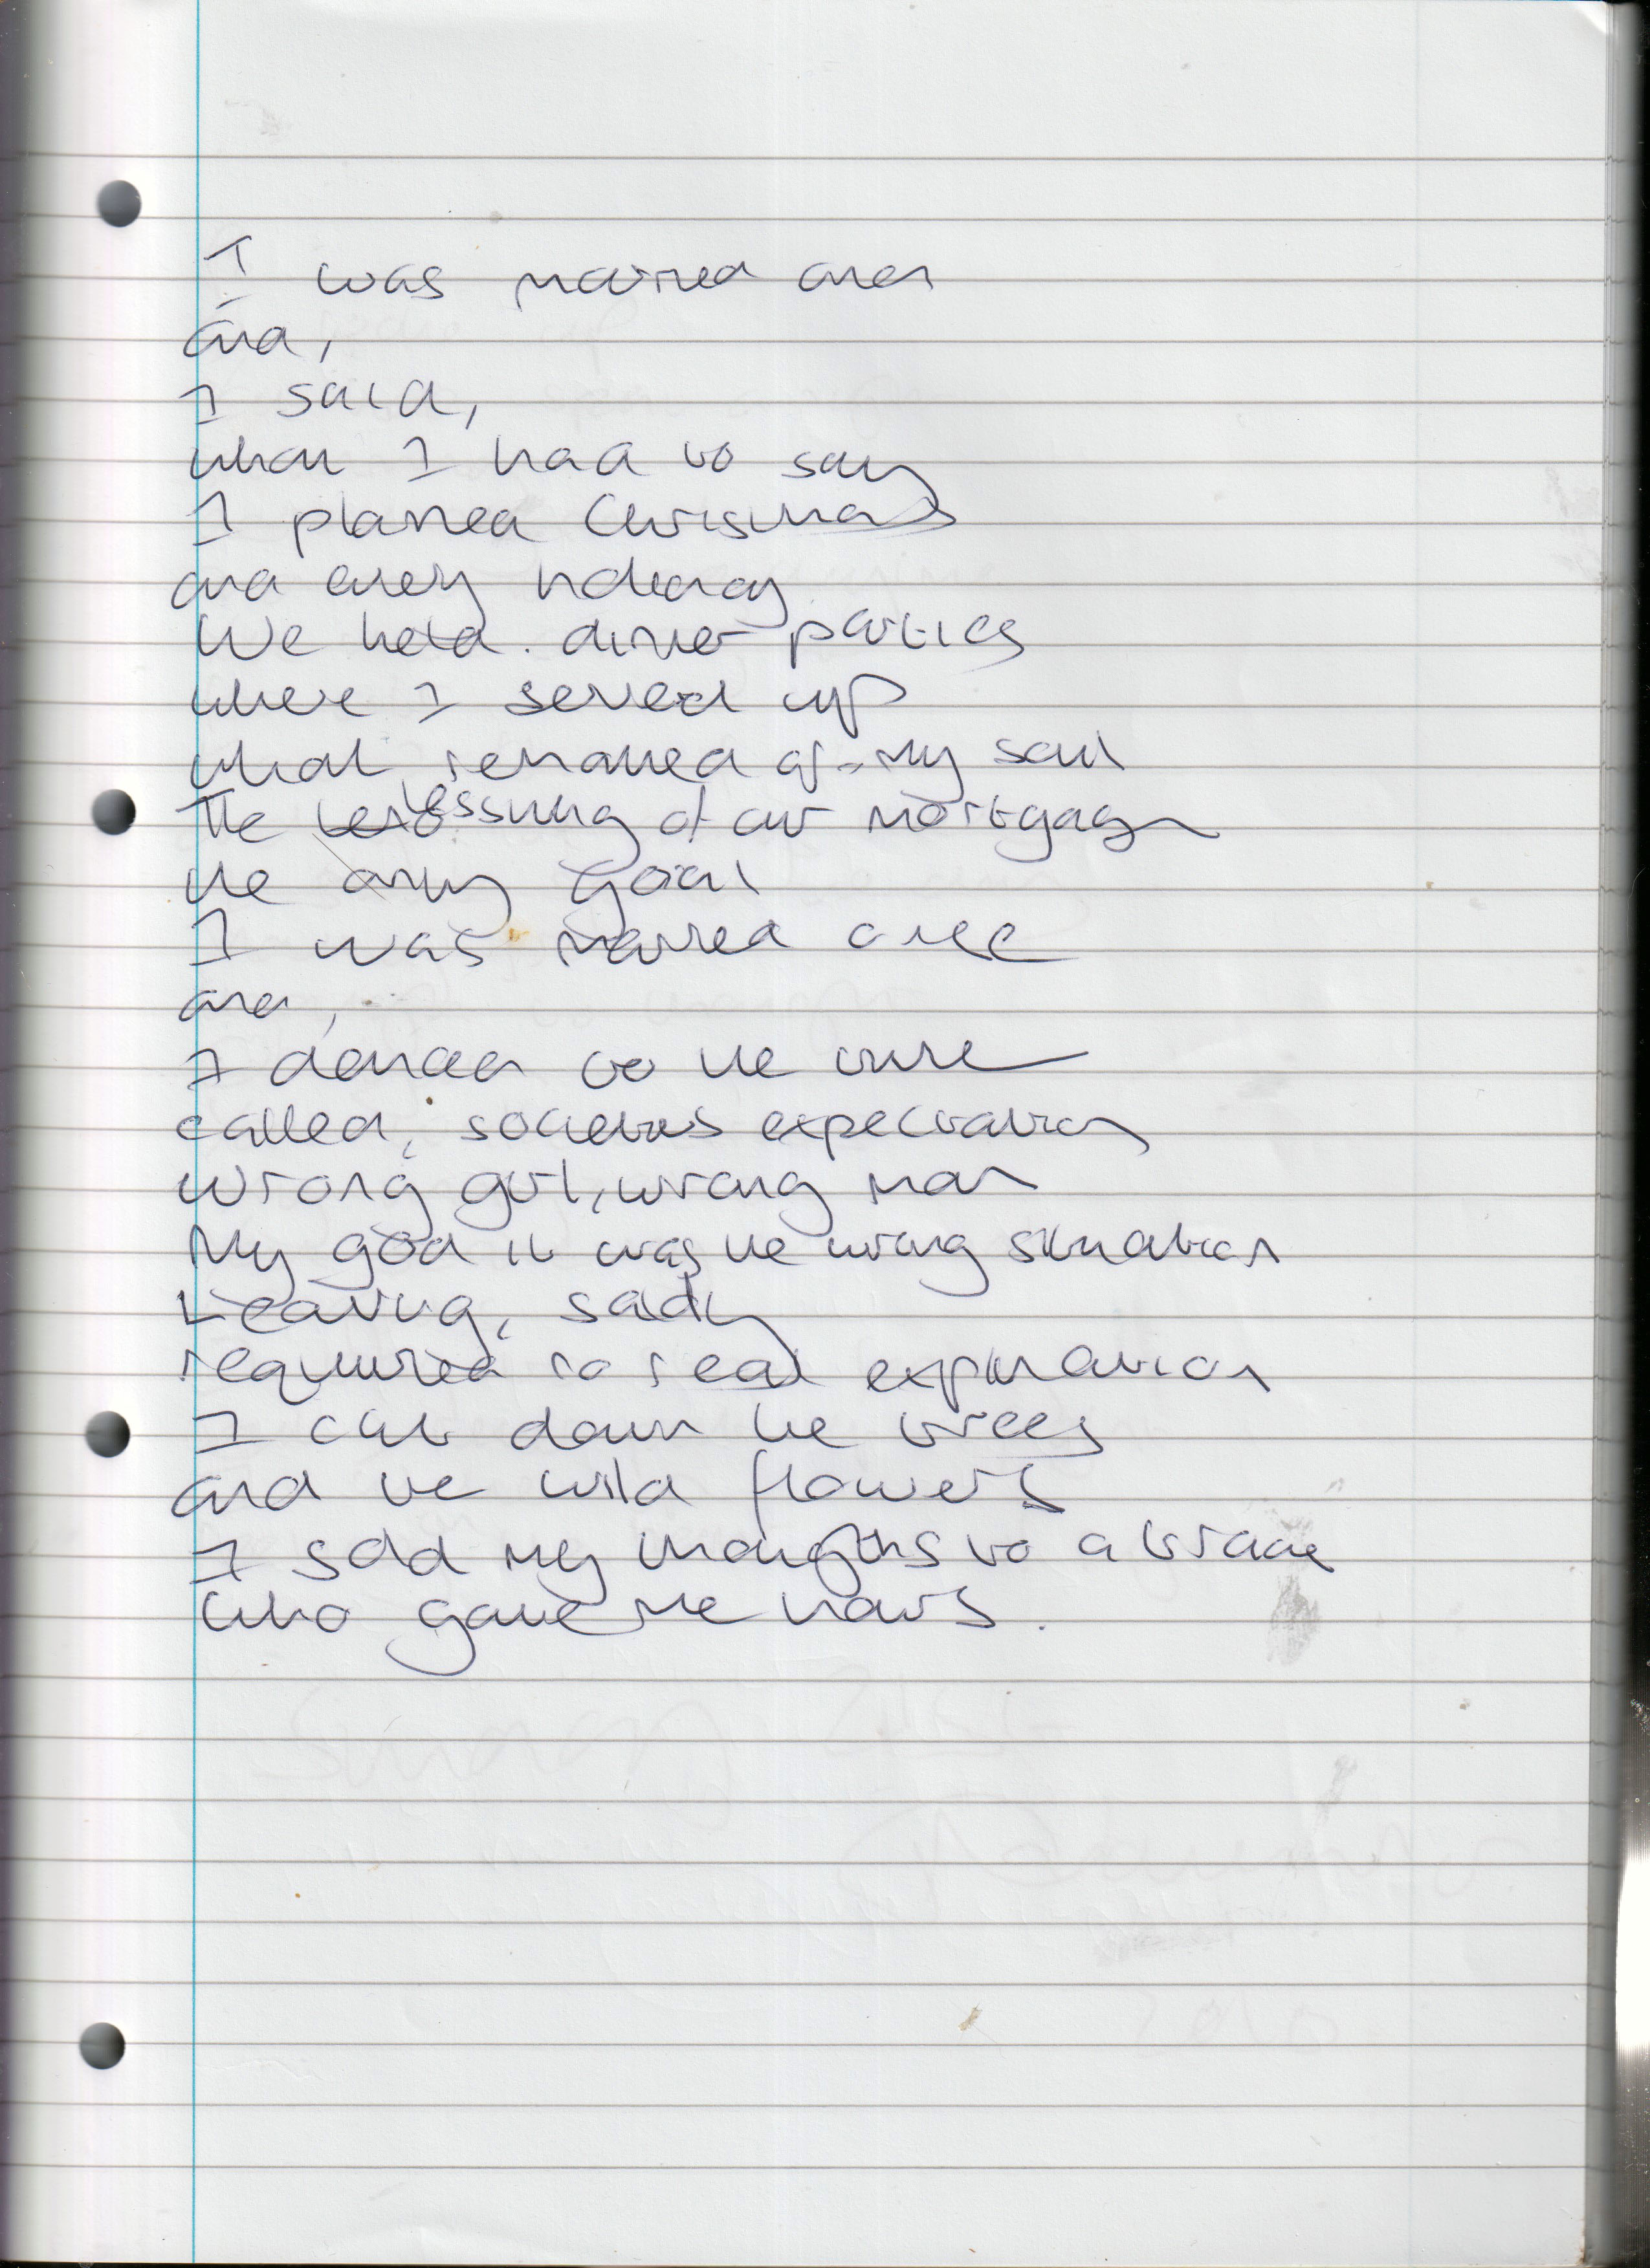 I was married once
and,
I said,
what I had to say
I planned Christmas
and every holiday
We held dinner parties
where I served up
what remained of my soul
The lessening of our mortgage
the only goal
I was married once
and,
I danced to the tune
called, societies expectation
wrong girl, wrong man
My god it was the wrong situation
Leaving, sadly
required no real explanation
I cut down the trees
and the wild flowers
I sold my thoughts to a
who gave me hours.